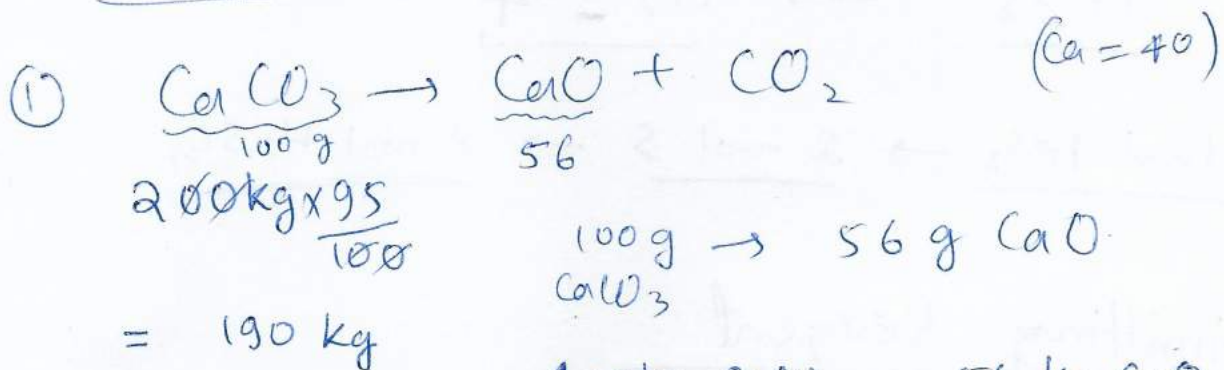 ① CaCO₃ → CaO + CO₂ (Ca = 40)
100 g 56
200kg×95/100
100g → 56 g CaO
CaCO₃
= 190 kg